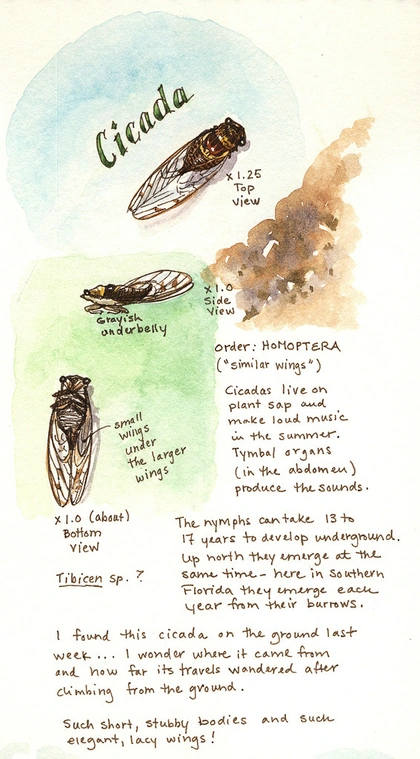 Cicada
x 1.25
Top
view
x 1.0
Side
View
Grayish
underbelly
order: HOMOPTERA
("similar wings")
Cicadas live on
plant sap and
make loud music
in the summer.
Tymbal organs
(in the abdomen)
produce the sounds.
small
wings
under
the larger
wings
x 1.0 (about)
Bottom
View
Tibicen sp. ?
The nymphs can take 13 to
17 years to develop underground.
Up north they emerge at the
same time - here in Southern
Florida they emerge each
year from their burrows.
I found this cicada on the ground last
week... I wonder where it came from
and how far its travels wandered after
climbing from the ground.
Such short, stubby bodies and such
elegant, lacy wings!